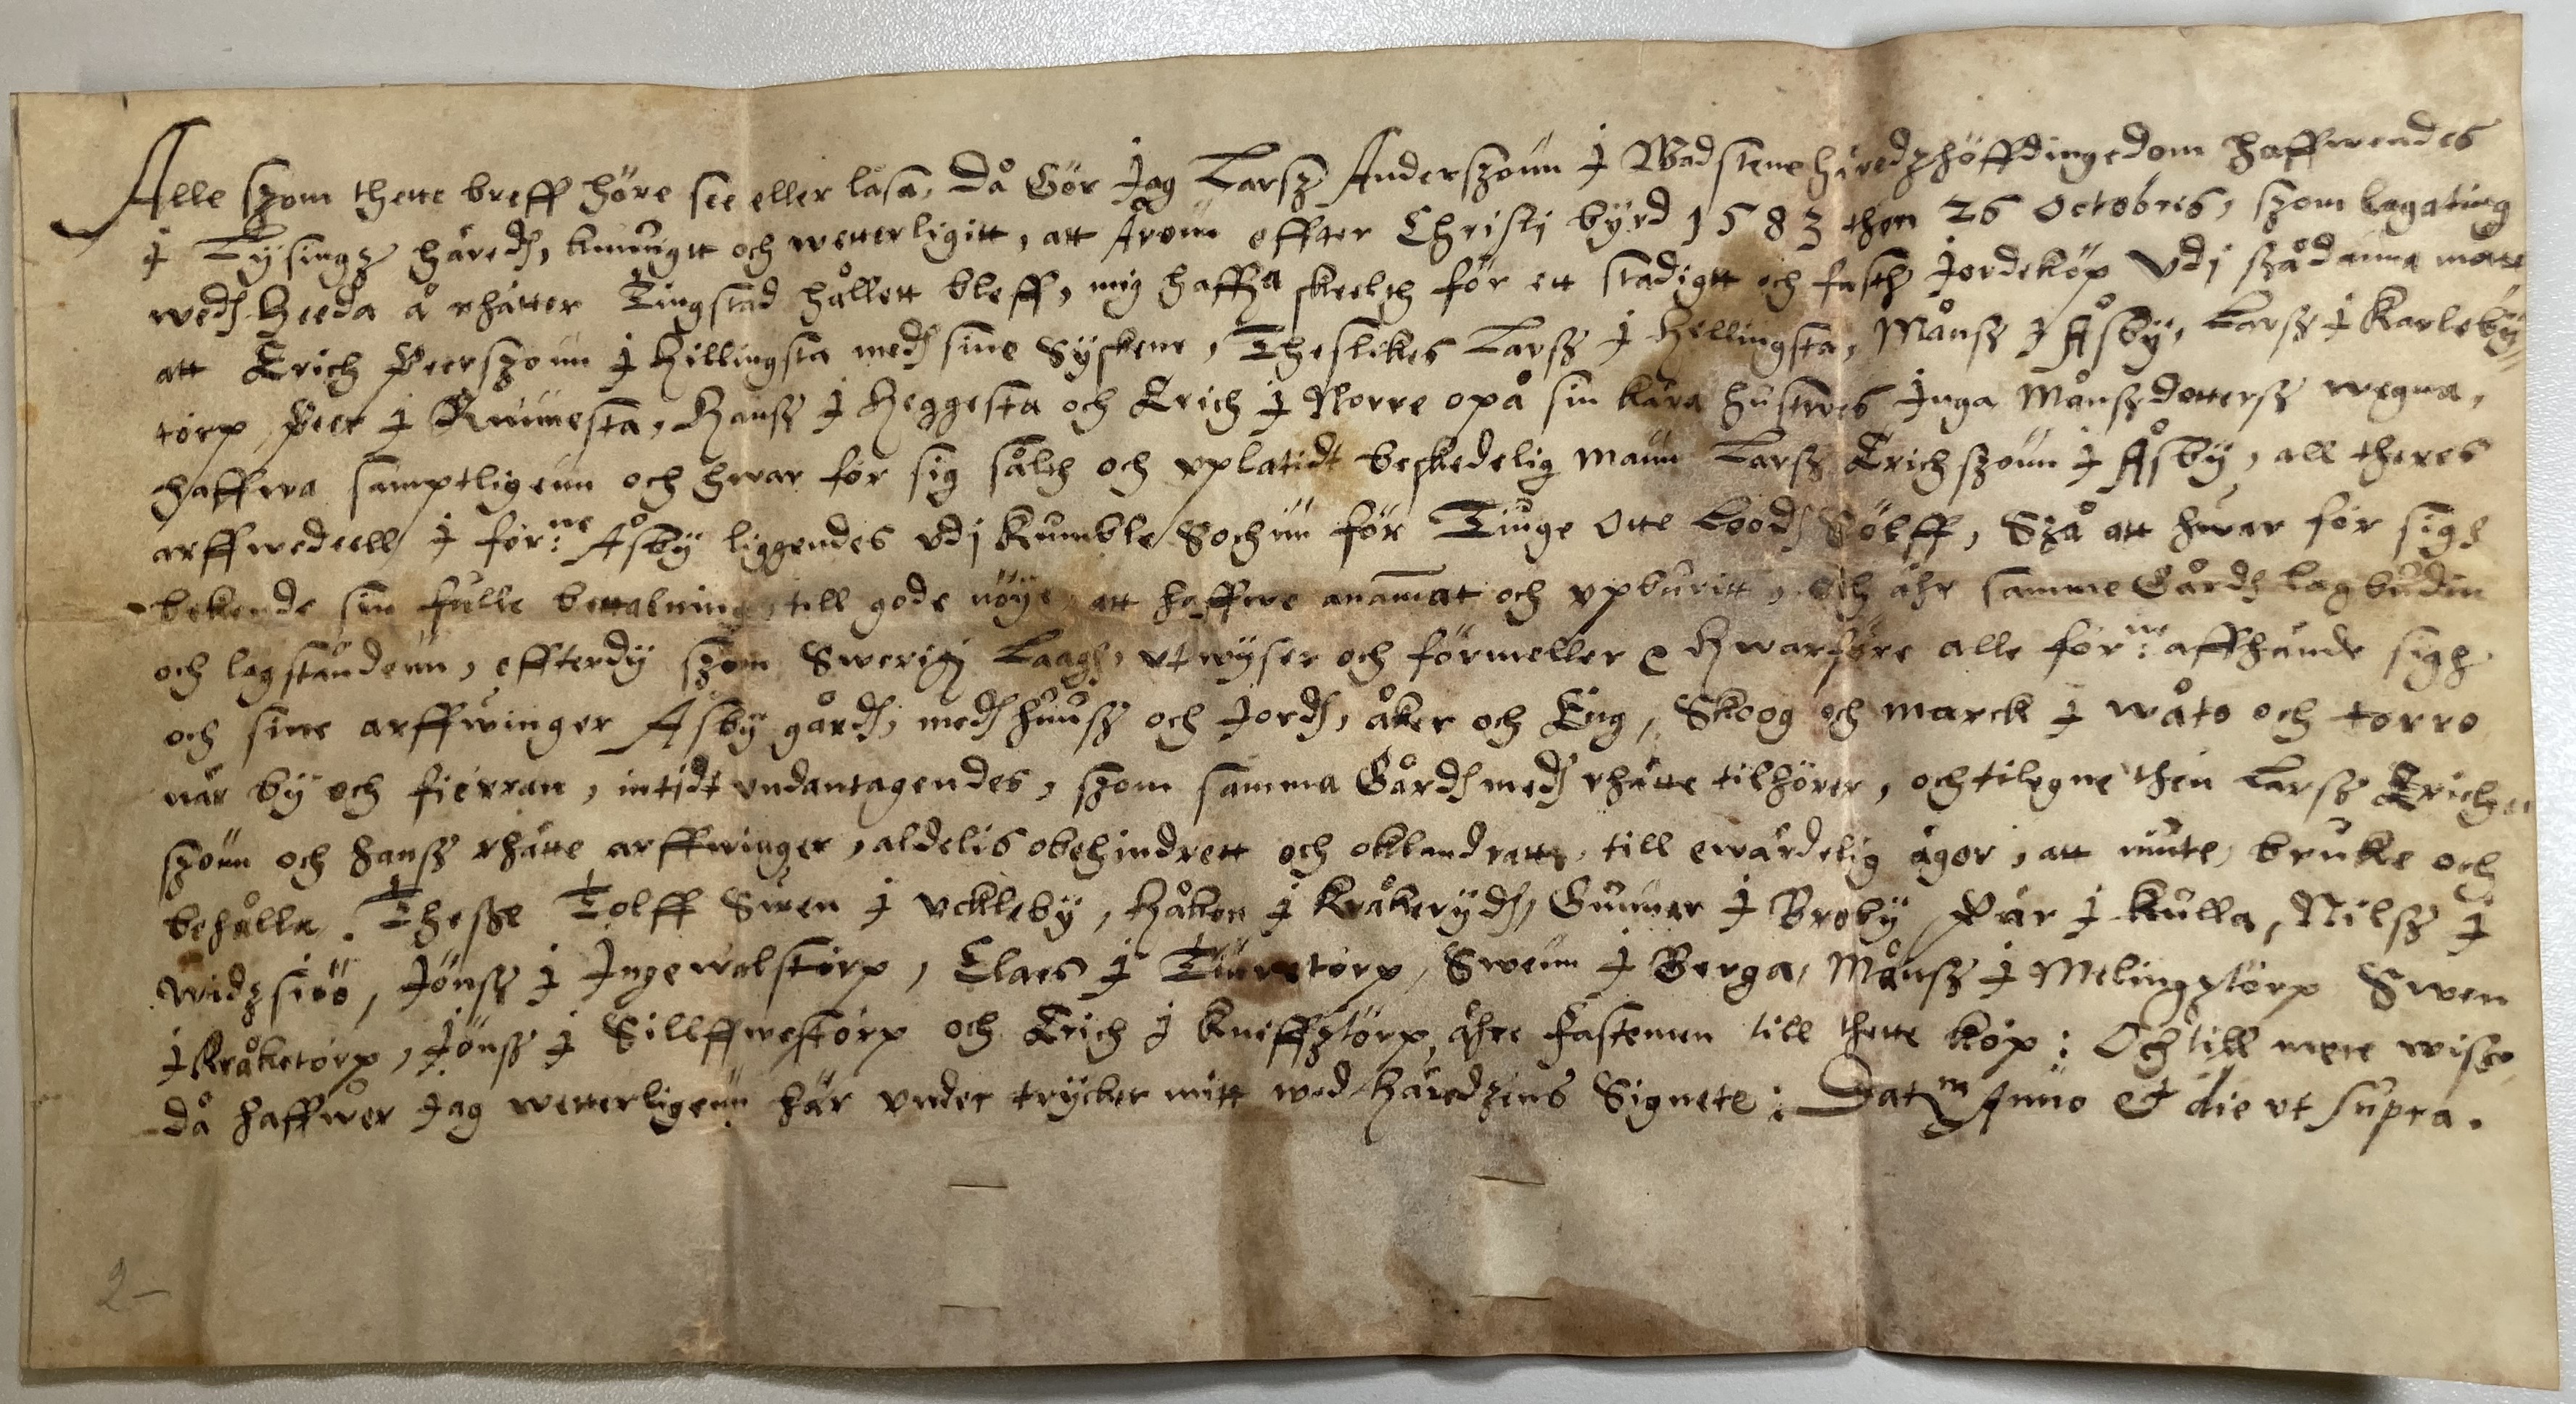 Alle szom thette breff höre see eller läsa, Då Gör Jag Larsz Anderszonn J Wadstene häredzhöffdingedom haffwendes
J Lÿsingz häredh, kunnigtt och wetterligitt, att Åronn effter Christj bÿrd 1583 then 26 Octobris, szom lagating
wedh Heeda å rhätter Tingstad hållett bleff, mig haffua skeelth för ett stadigtt och fasth Jordeköp vdj szådanna matte
att Erich Peerszonn J Hillingsta medh sine Sÿskene, Theslikes Larsz J Hellingsta, Månsz J Åsbÿ, Larsz J Karlebÿ
torp, Peer J Runnesta, Hansz J Heggesta och Erich J Norre opå sin kära hustrves Jnga Månszdottersz wegna,
haffwa samptligenn och hwar för sig sålth och vplatidt beskedelig mann Larsz Erichszonn J Åsbÿ, all theres
arffwedeell J för:ne Åsbÿ liggendes vdj Kumble Sochnn för Tiuge Otte Loodh Sölff, Szå att hwar för sigh
bekende sin fulle bettalning, till gode nöÿe att haffwe anammat och vpburitt, och ähr samme Gårdh lagbudin
och lagståndenn, effterdÿ szom Swerigis Laagh vtwÿser och förmeller Hwarföre alle för:ne affhände sigh
och sine arffwinger Åsbÿ gårdh, medh huusz och Jordh, åker och Eng, Skoog och marck J wåto och torro
när bÿ och fierran, intidt vndantagendes, szom samma Gårdh medh rhätte tilhörer, och tilegne then Larsz Erich
szonn och hansz rhätte arffwinger, aldelis obehindrett och oklandratt, till ewärdelig ägor, att niute, bruke och
behålla. Thesze Tolff Swen J Vcklebÿ, Håken J Kråkerÿdh, Gunnar J Brobÿ, Pär J Kulla, Nilsz J
Widzsiöö, Jönsz J Jngewalstorp, Claes J Tiuretorp, Swenn J Berga, Månsz J Melingztorp Swen
J Kråketorp, Jönsz J Sillffwestorp och Erich J Kniffztorp, ähre Fastemen till thette köp: Och till mere wisze
då haffwer Jag wetterligenn här vnder trÿcket mitt wed häredzens Signete: Datum Anno et die vt supra.
2